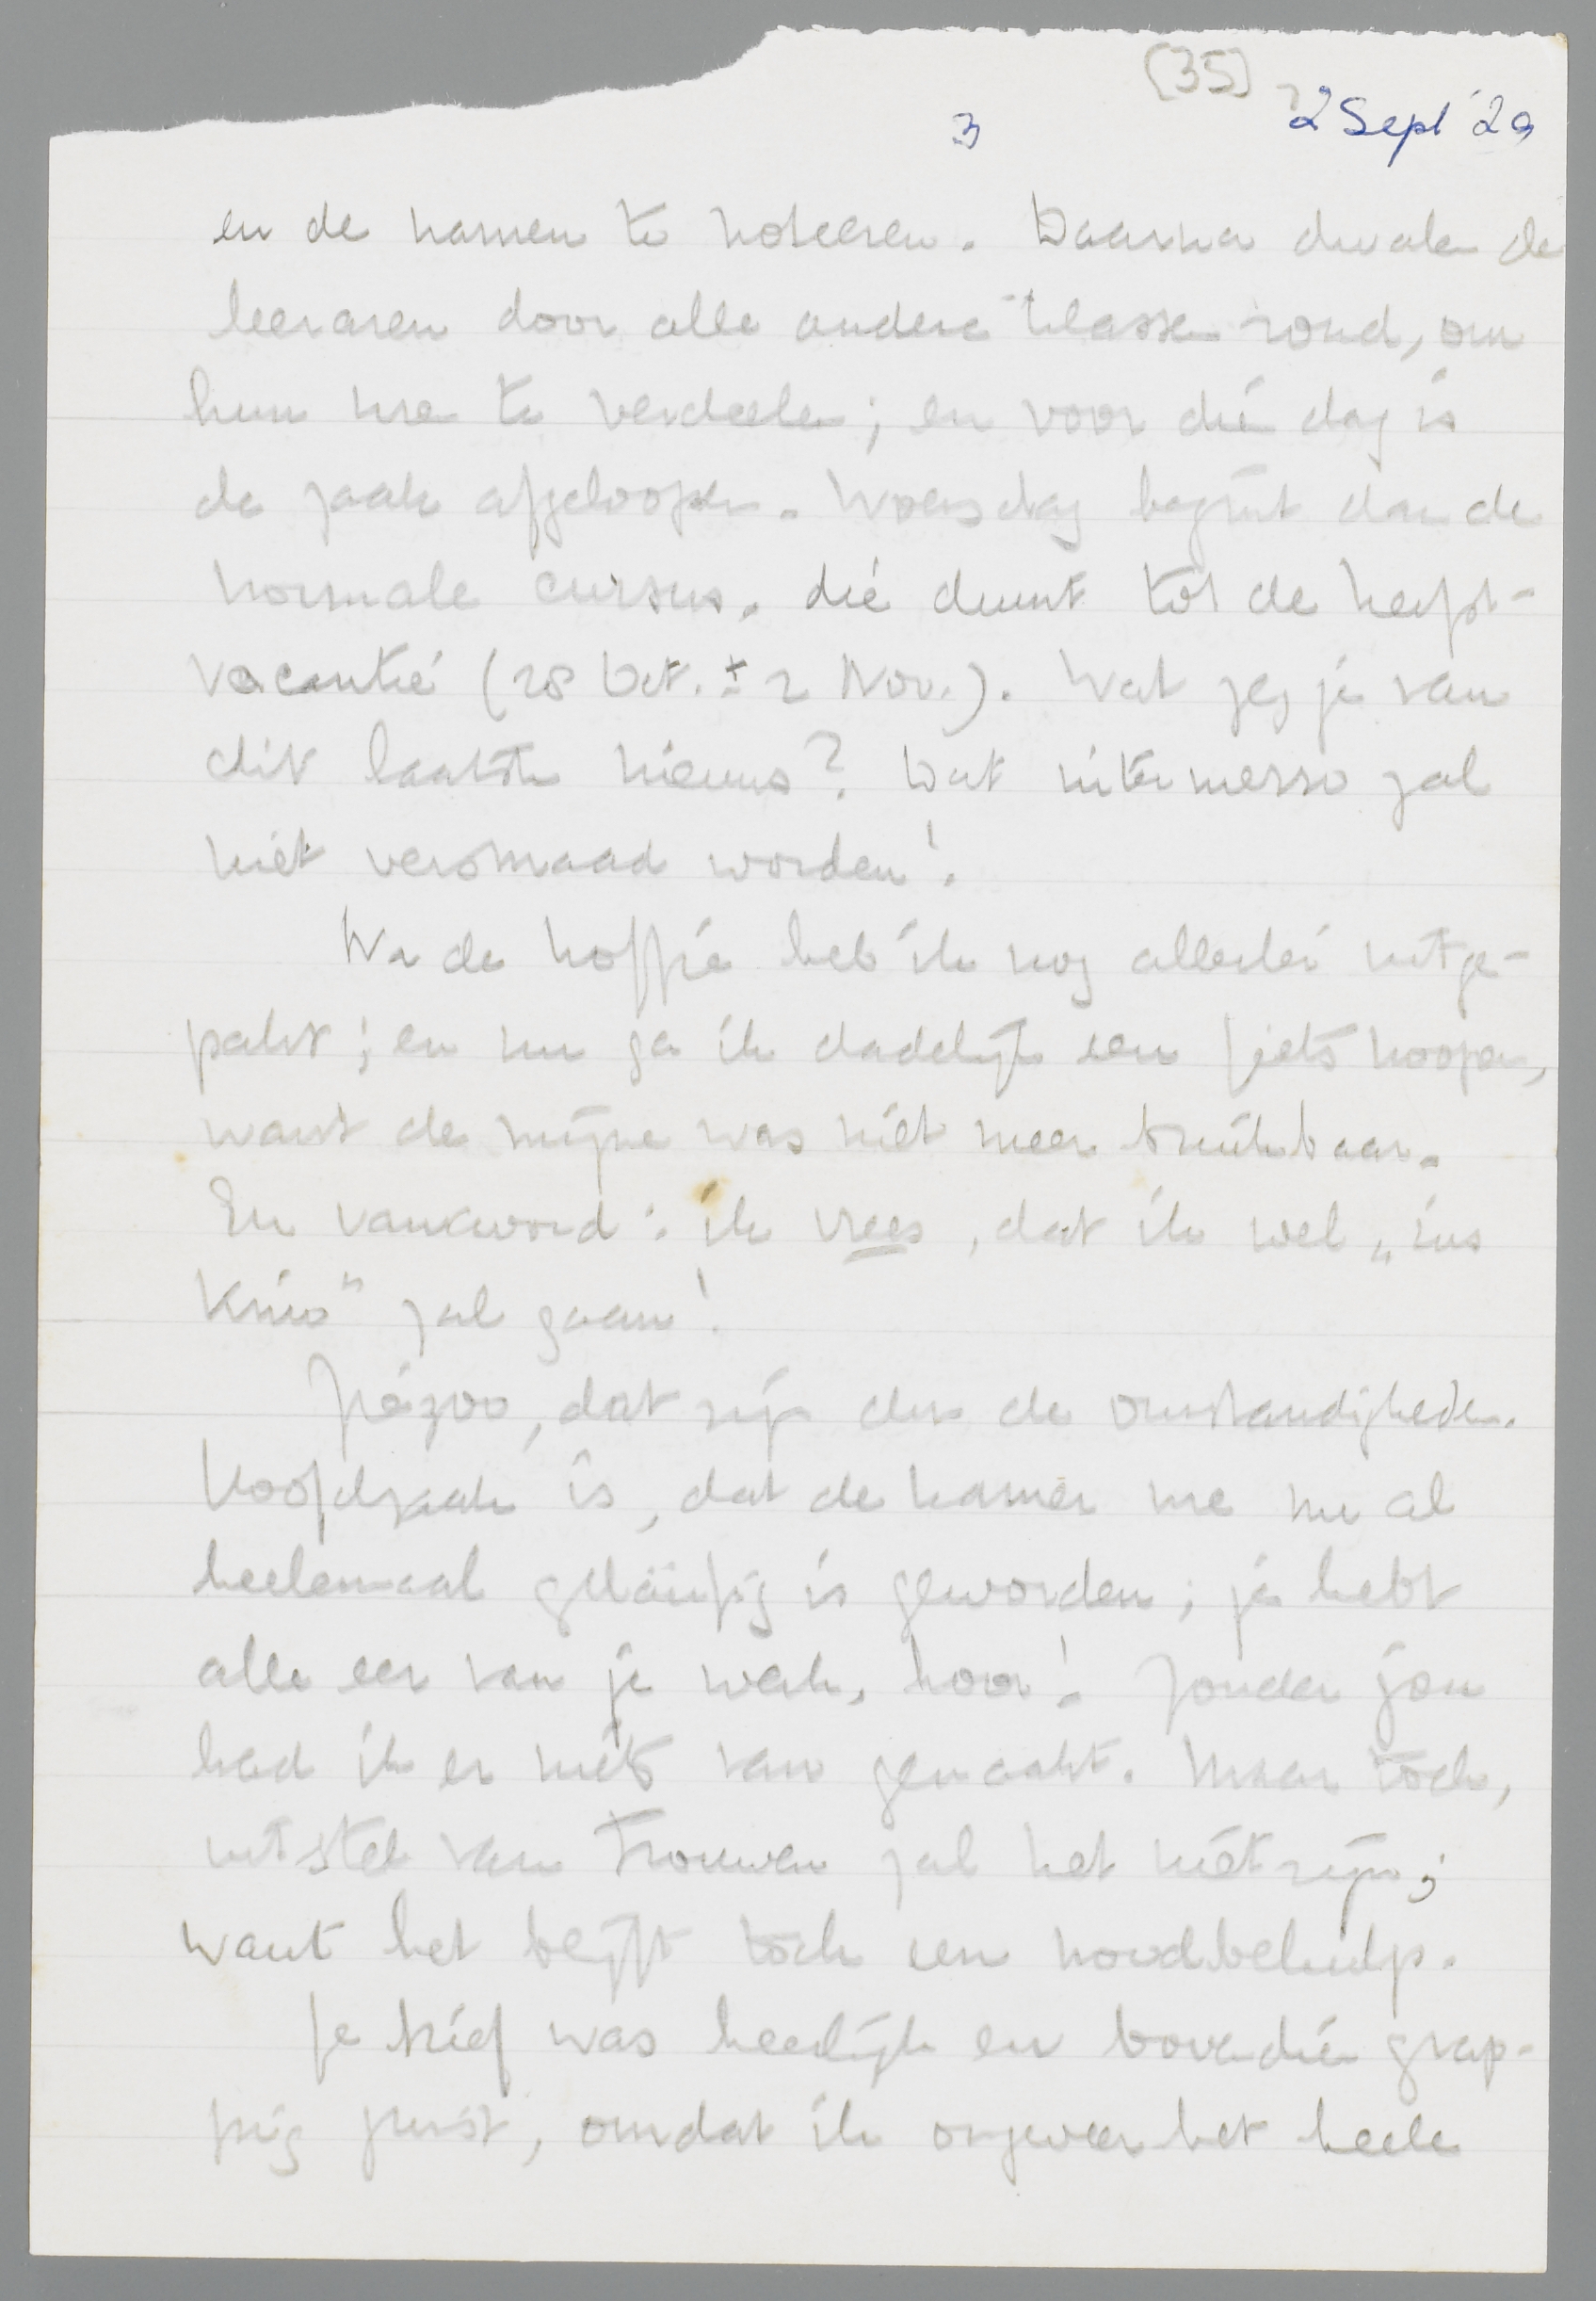 [35]
3
2 Sept '29
en de namen te noteeren. Daarna dwalen de
leeraren door alle andere klassen rond, om
hun uren te verdeelen; en voor die dag is
de zaak afgeloopen. Woensdag begint dan de
normale cursus. die duurt tot de herfst-
vacantie (28 Oct. ± 2 Nov.). Wat zeg je van
dit laatste nieuws? Dat intermezzo zal
niet versmaad worden!
Na de koffie heb ik nog allerlei uitge-
pakt; en nu ga ik dadelijk een fiets koopen,
want de mijne was niet meer bruikbaar.
En vanavond: ik vrees, dat ik wel „ins
Kino" zal gaan!
Ziezoo, dat zijn dus de omstandigheden.
Hoofdzaak is, dat de kamer me nu al
heelemaal geläufig is geworden; je hebt
alle eer van je werk, hoor! Zonder jou
had ik er niets van gemaakt. Maar toch,
uitstel van trouwen zal het niet zijn;
want het blijft toch een noodbehulp.
Je brief was heerlijk en bovendien grap-
pig juist, omdat ik ongeveer het heele